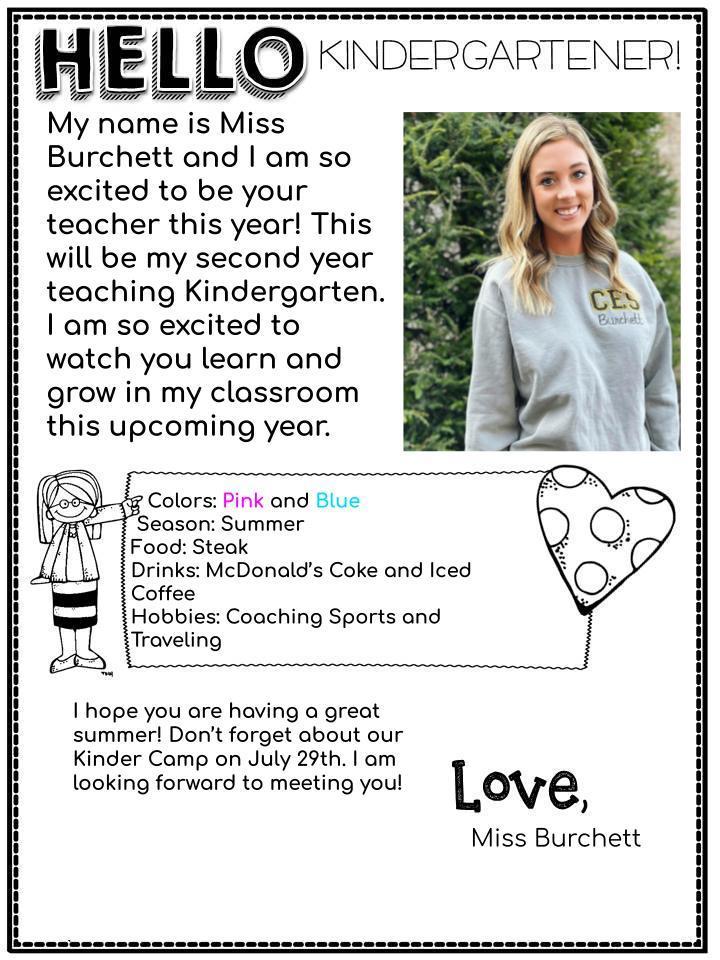 HELLO KINDERGARTENER!
My name is Miss
Burchett and I am so
excited to be your
teacher this year! This
will be my second year
teaching Kindergarten.
I am so excited to
watch you learn and
grow in my classroom
this upcoming year.
CES
Burchett
Colors: Pink and Blue
Season: Summer
Food: Steak
Drinks: McDonald's Coke and Iced
Coffee
Hobbies: Coaching Sports and
Traveling
I hope you are having a great
summer! Don't forget about our
Kinder Camp on July 29th. I am
looking forward to meeting you!
Love,
Miss Burchett